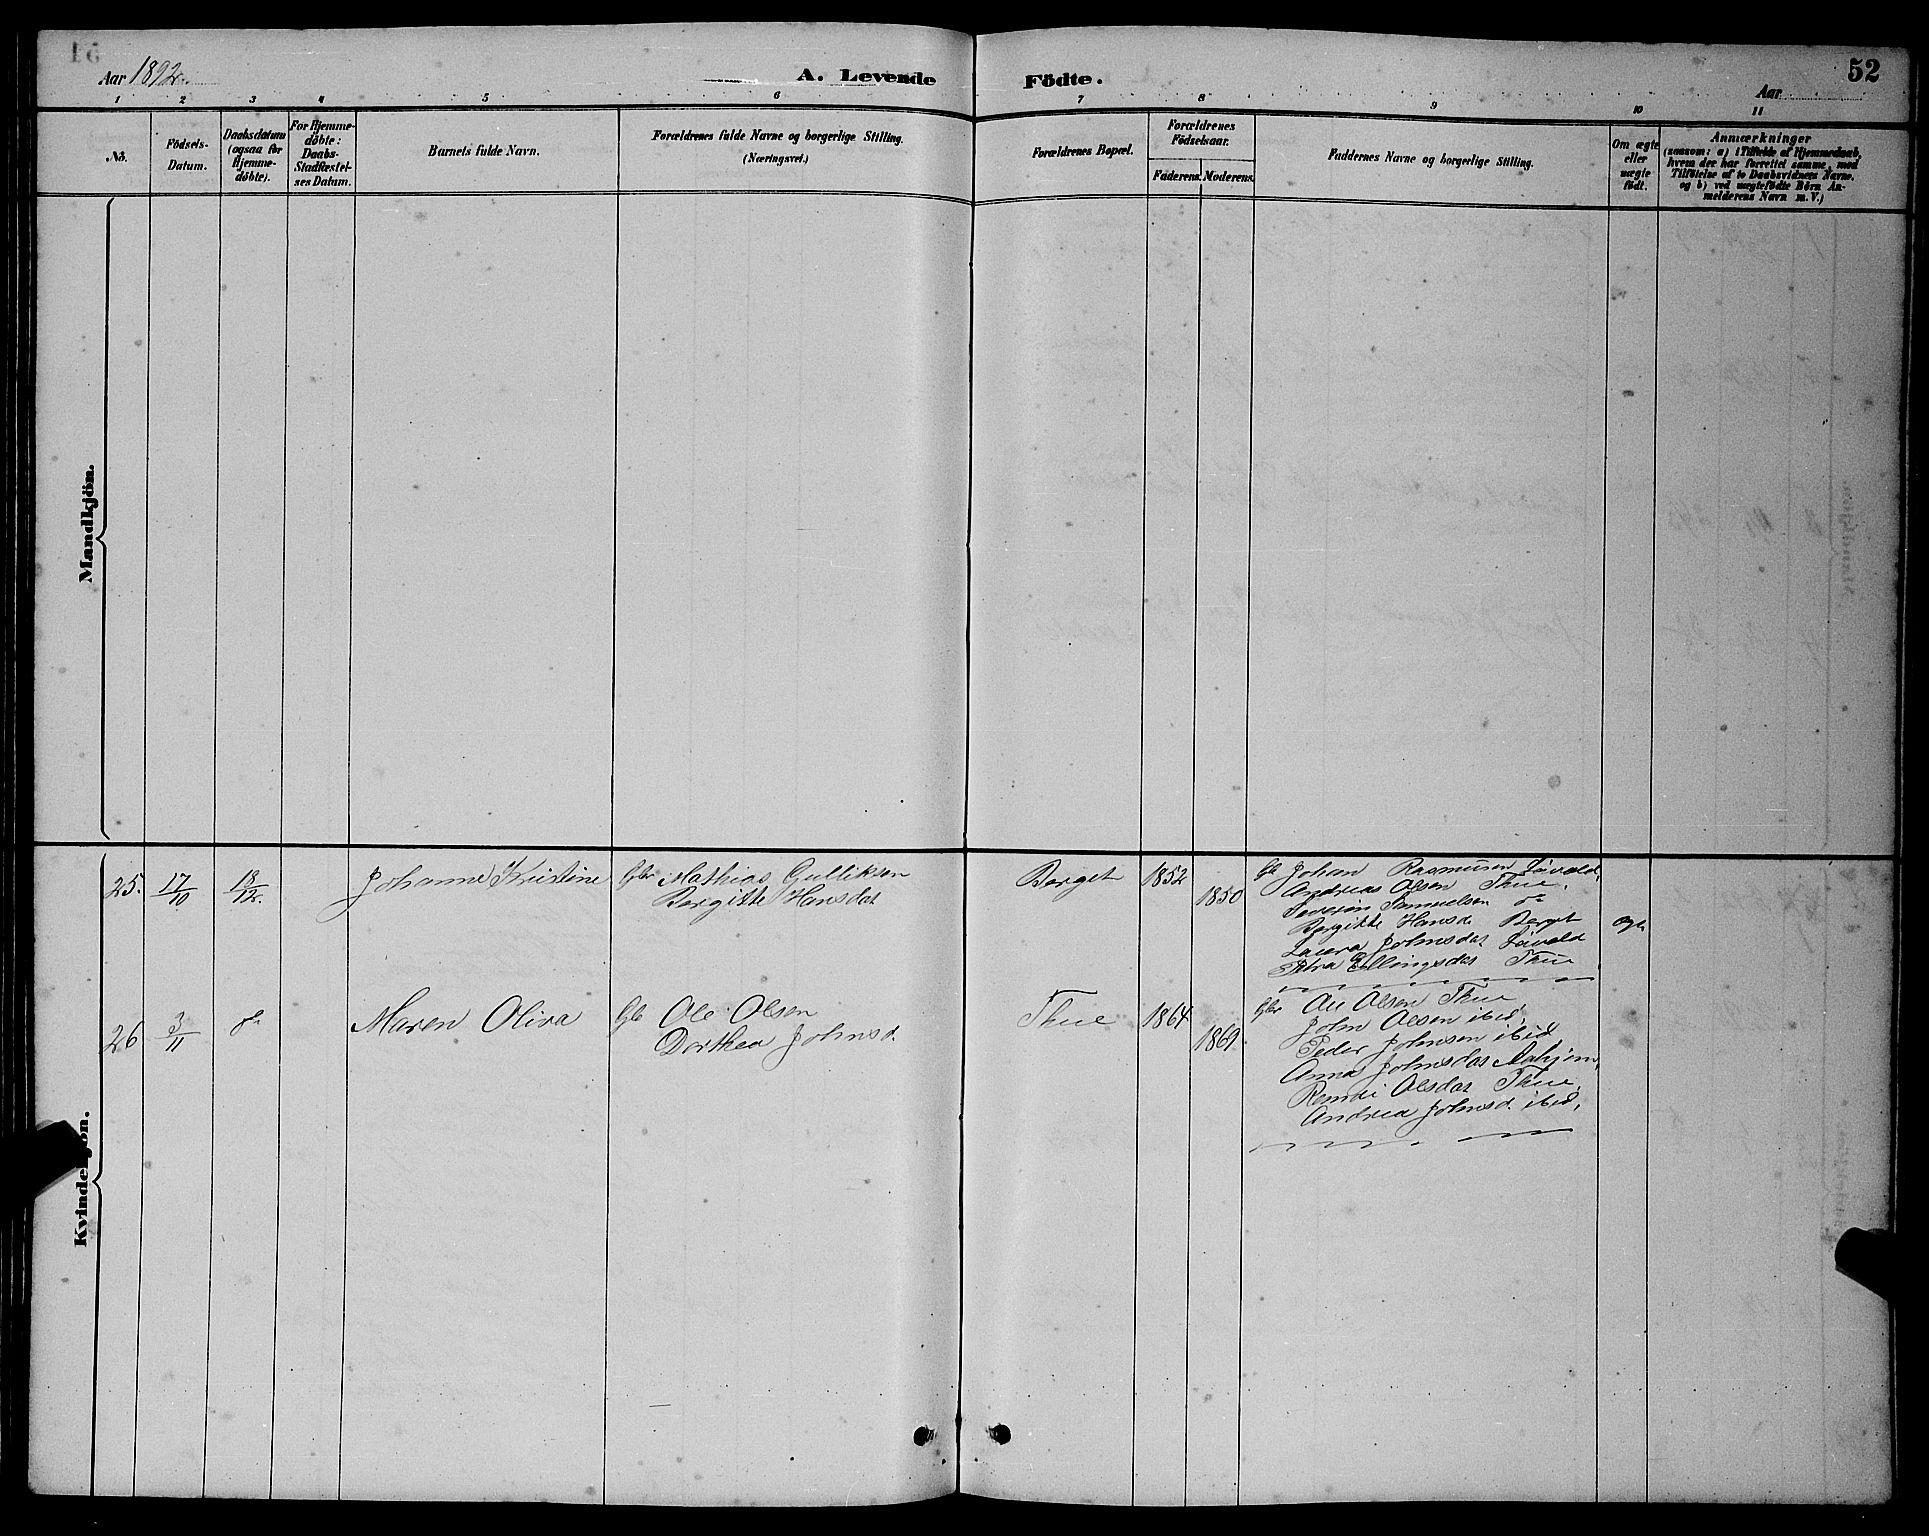 Aar 1892.
A. Levende Födte.
52
Aar
1 2 3 4 5 6 7 8 9 10 11
No.
Födsels-
Datum.
Daabsdatum
(ogsaa for
Hjemme-
döbte).
For Hjemme-
döbte:
Daabs-
Stadfæstel-
ses Datum.
Barnets fulde Navn.
Forældrenes fulde Navne og borgerlige Stilling.
(Næringsvei.)
Forældrenes Bopæl.
Forældrenes
Födselsaar.
Faderens. Moderens.
Faddernes Navne og borgerlige Stilling.
Om ægte
eller
uægte
födt.
Anmærkninger
(saasom: a) i Tilfælde af Hjemmedaab,
hvem der har forrettet samme, med
Tilföielse af to Daabsvidners Navne,
og b) ved uægtefödte Börn An-
melderens Navn m. V.)
Mandkjön.
Kvindekjön.
25. 17/10 18/12. Johanne Kristine
Gbr Mathias Gulliksen
Bergitte Hansdat
Berget 1852
1850
Gb Johan Rasmusen Lövold,
Andreas Olsen Thue,
Severin Samuelsen do
Bergitte Hansd. Berget
Laura Johnsdat Lövold
Petra Ellingsdat Thue
26 3/11 do Maren Oliva
Gb Ole Olsen
Dorthea Johnsd.
Thue 1864
1869
Gbr Ole Olsen Thue,
John Olsen ibid,
Peder Johnsen ibid
Anna Johnsdat
Olsdat Thue,
Andrea Johnsd. ibid,